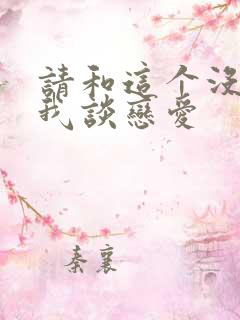 請和這个没
我談戀愛
秦襄